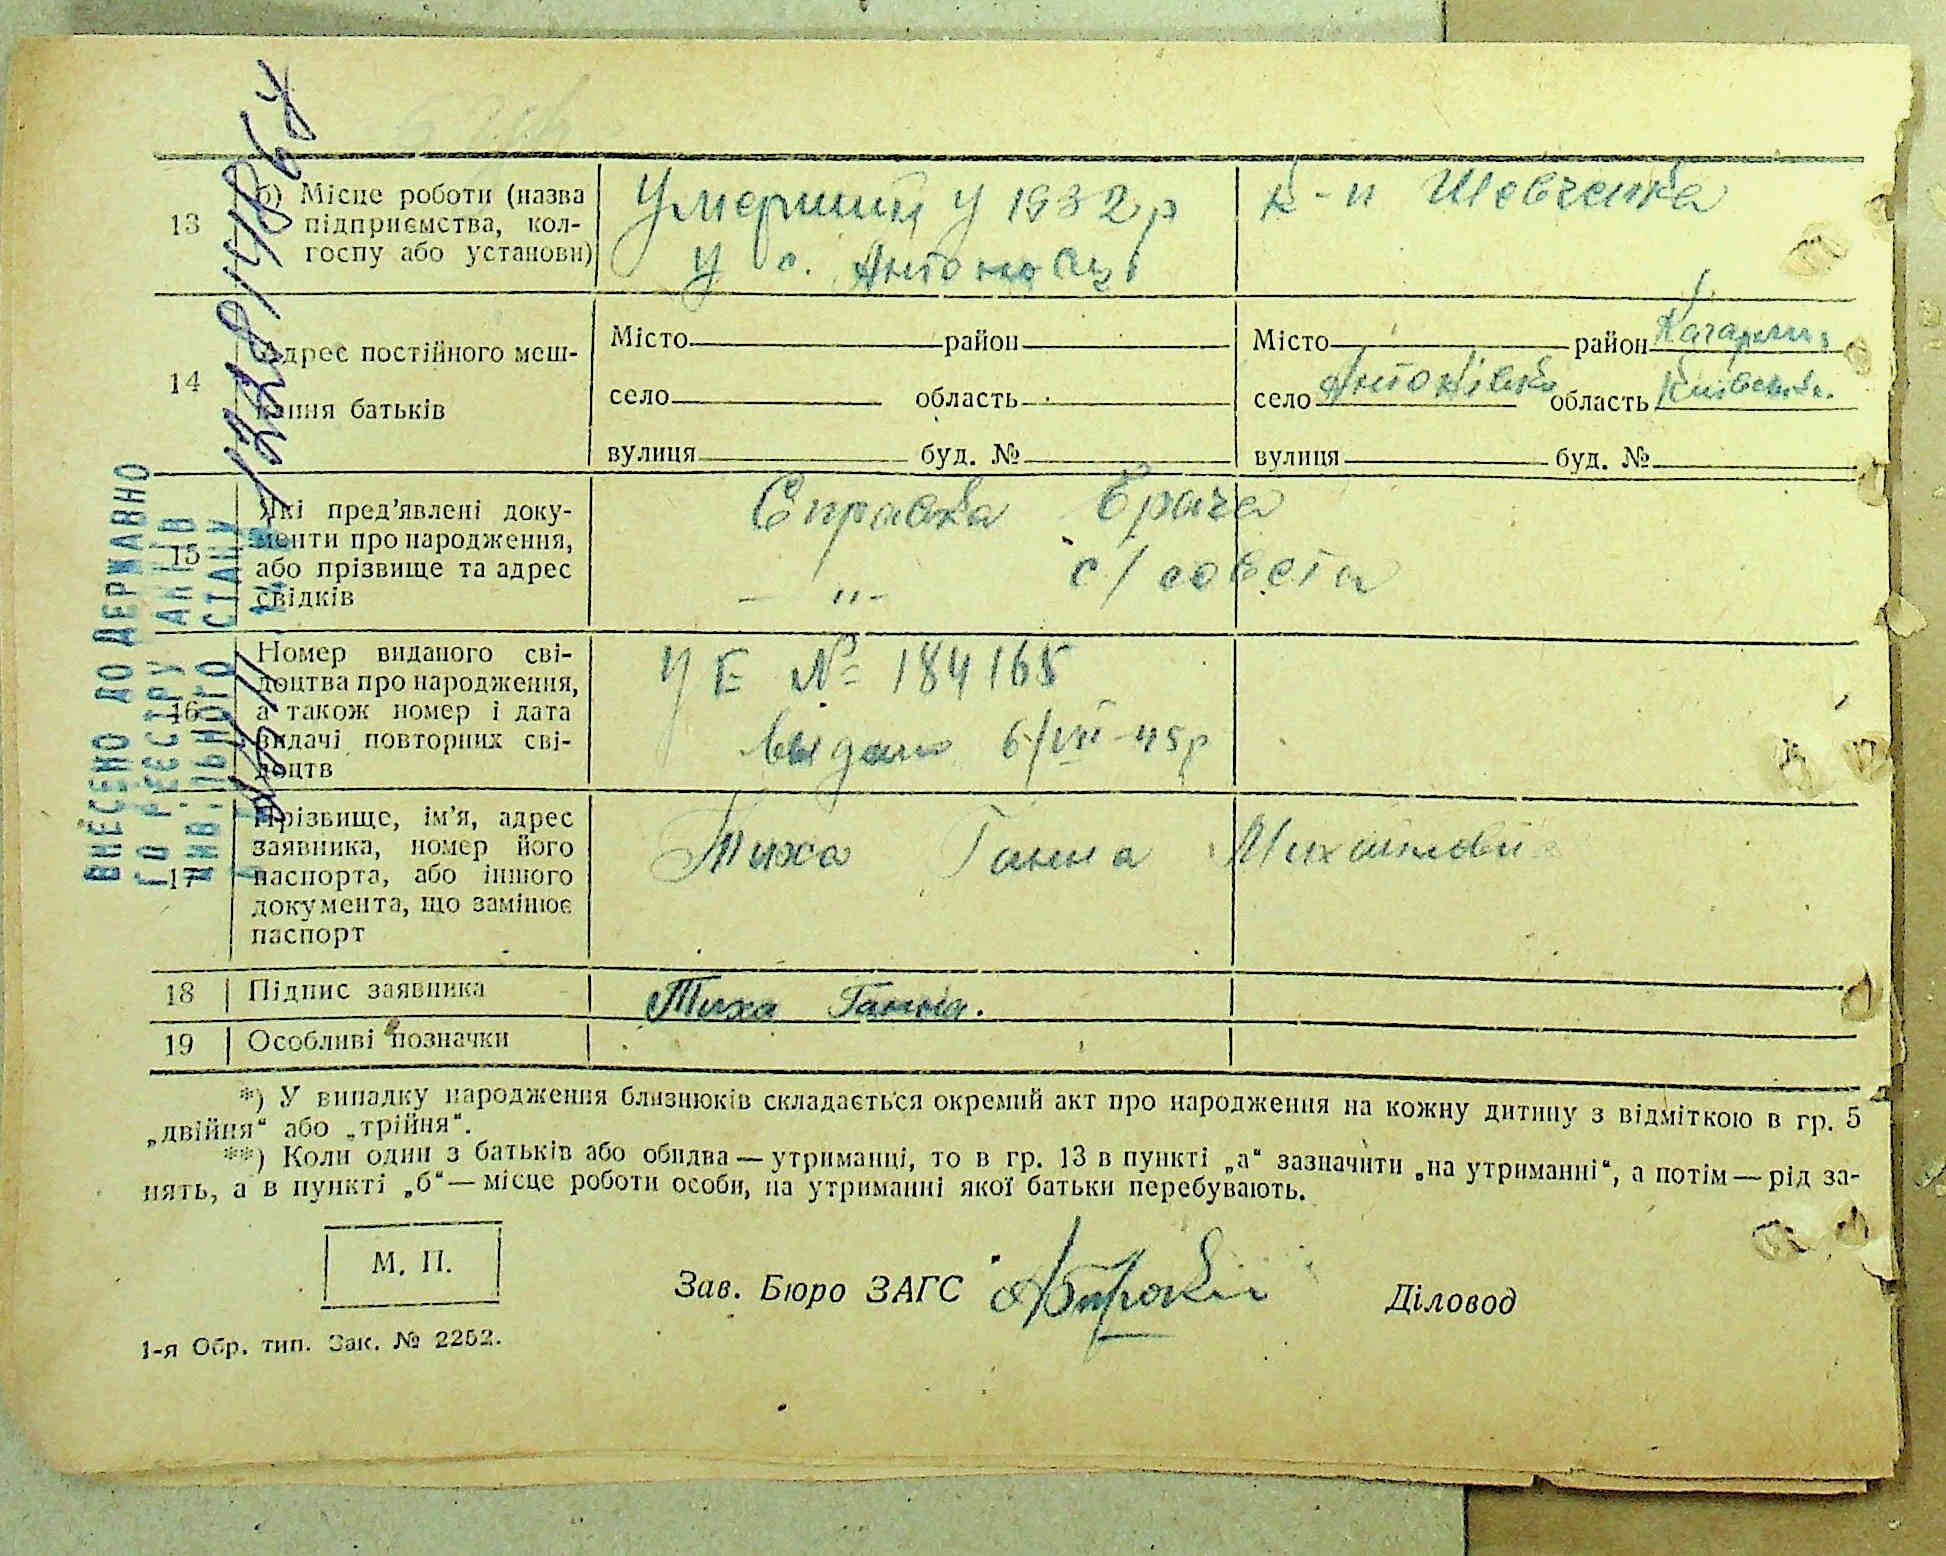 13
б) Місце роботи (назва
підприємства, кол-
госпу або установи)
Умерший у 1932 р
у с. Антоновці
к-п Шевченка
14
Адрес постійного меш-
кання батьків
Місто район
село область
вулиця буд. №
Місто район Кагарлик.
село Антонівка область Київська.
вулиця буд. №
15
Які пред'явлені доку-
менти про народження,
або прізвище та адрес
свідків
Справка врача
— „ - с/совета
16
Номер виданого сві-
доцтва про народження,
а також номер і дата
видачі повторних сві-
доцтв
УБ № 184165
видано 6/VIII-45р
17
Прізвище, ім'я, адрес
заявника, номер його
паспорта, або іншого
документа, що замінює
паспорт
Тиха Ганна Михайлівн
18
Підпис заявника
Тиха Ганна.
19
Особливі позначки
ВНЕСЕНО ДО ДЕРЖАВНО
ГО РЕЄСТРУ АКТІВ
ЦИВІЛЬНОГО СТАНУ
*) У випадку народження близнюків складається окремий акт про народження на кожну дитину з відміткою в гр. 5
„двійня“ або „трійня“.
**) Коли один з батьків або обидва — утриманці, то в гр. 13 в пункті „а“ зазначити „на утриманні“, а потім — рід за-
нять, а в пункті „б“ — місце роботи особи, на утриманні якої батьки перебувають.
М. П.
Зав. Бюро ЗАГС
Діловод
1-я Обр. тип. Зак. № 2252.